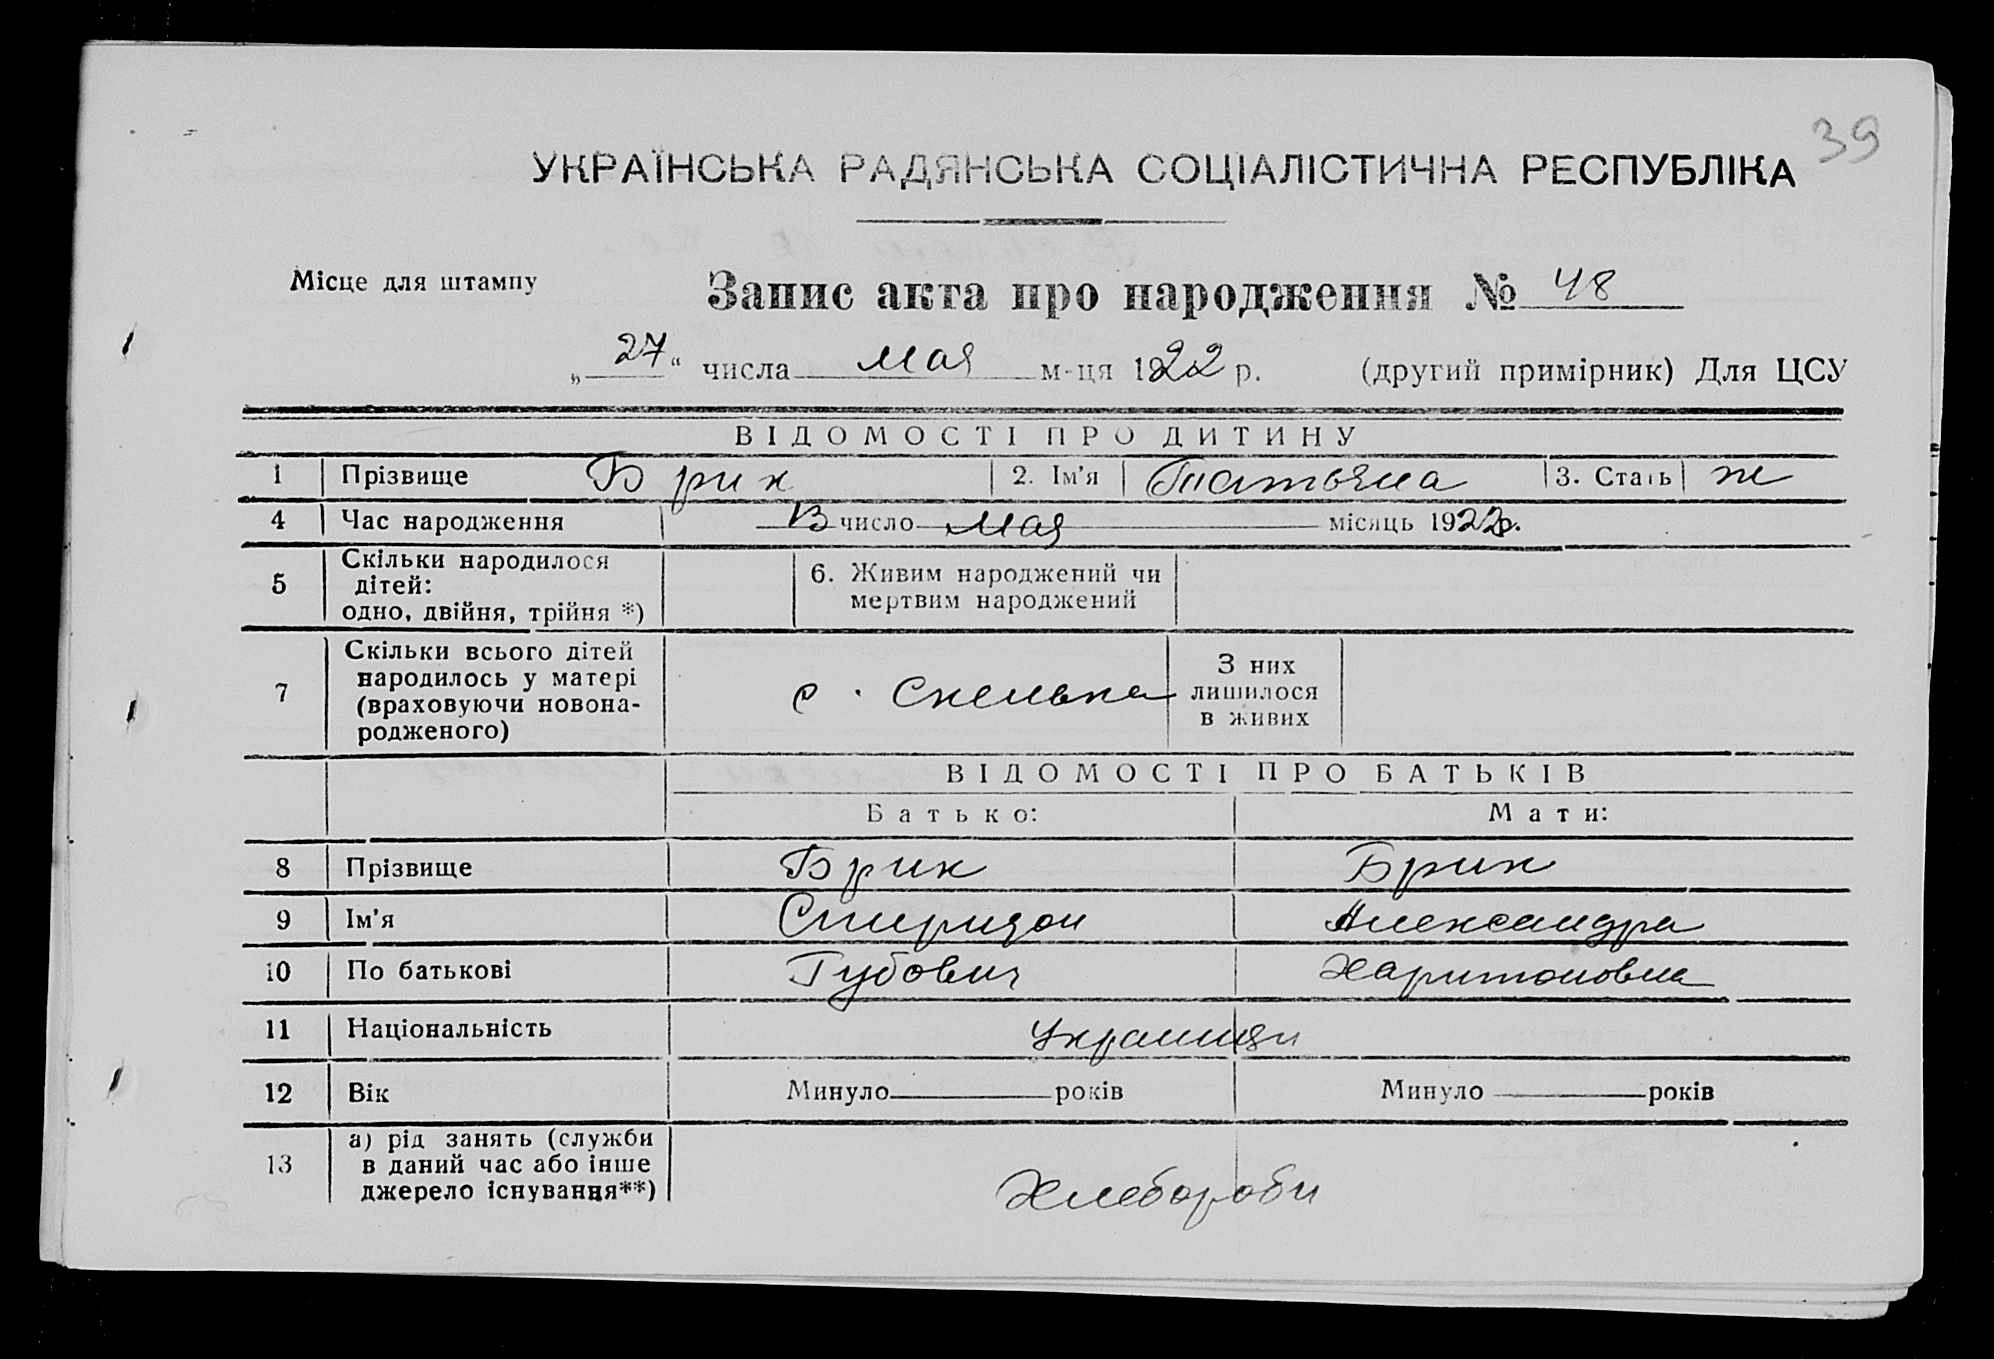 39
УКРАЇНСЬКА РАДЯНСЬКА СОЦІАЛІСТИЧНА РЕСПУБЛІКА
Місце для штампу
Запис акта про народження № 48
„27“ числа мая м-ця 1922 р. (другий примірник) Для ЦСУ
ВІДОМОСТІ ПРО ДИТИНУ
1 Прізвище Брик 2. Ім’я Татьяна 3. Стать ж
4 Час народження 13 число мая місяць 1922р.
5 Скільки народилося дітей: одно, двійня, трійня *) 6. Живим народжений чи мертвим народжений
7 Скільки всього дітей народилось у матері (враховуючи новонародженого) с. Скелька З них лишилося в живих
ВІДОМОСТІ ПРО БАТЬКІВ
Батько: Мати:
8 Прізвище Брик Брик
9 Ім’я Спиридон Александра
10 По батькові Харитоновна
11 Національність Украинци
12 Вік Минуло років Минуло років
13 а) рід занять (служби в даний час або інше джерело існування**) Хлебороби